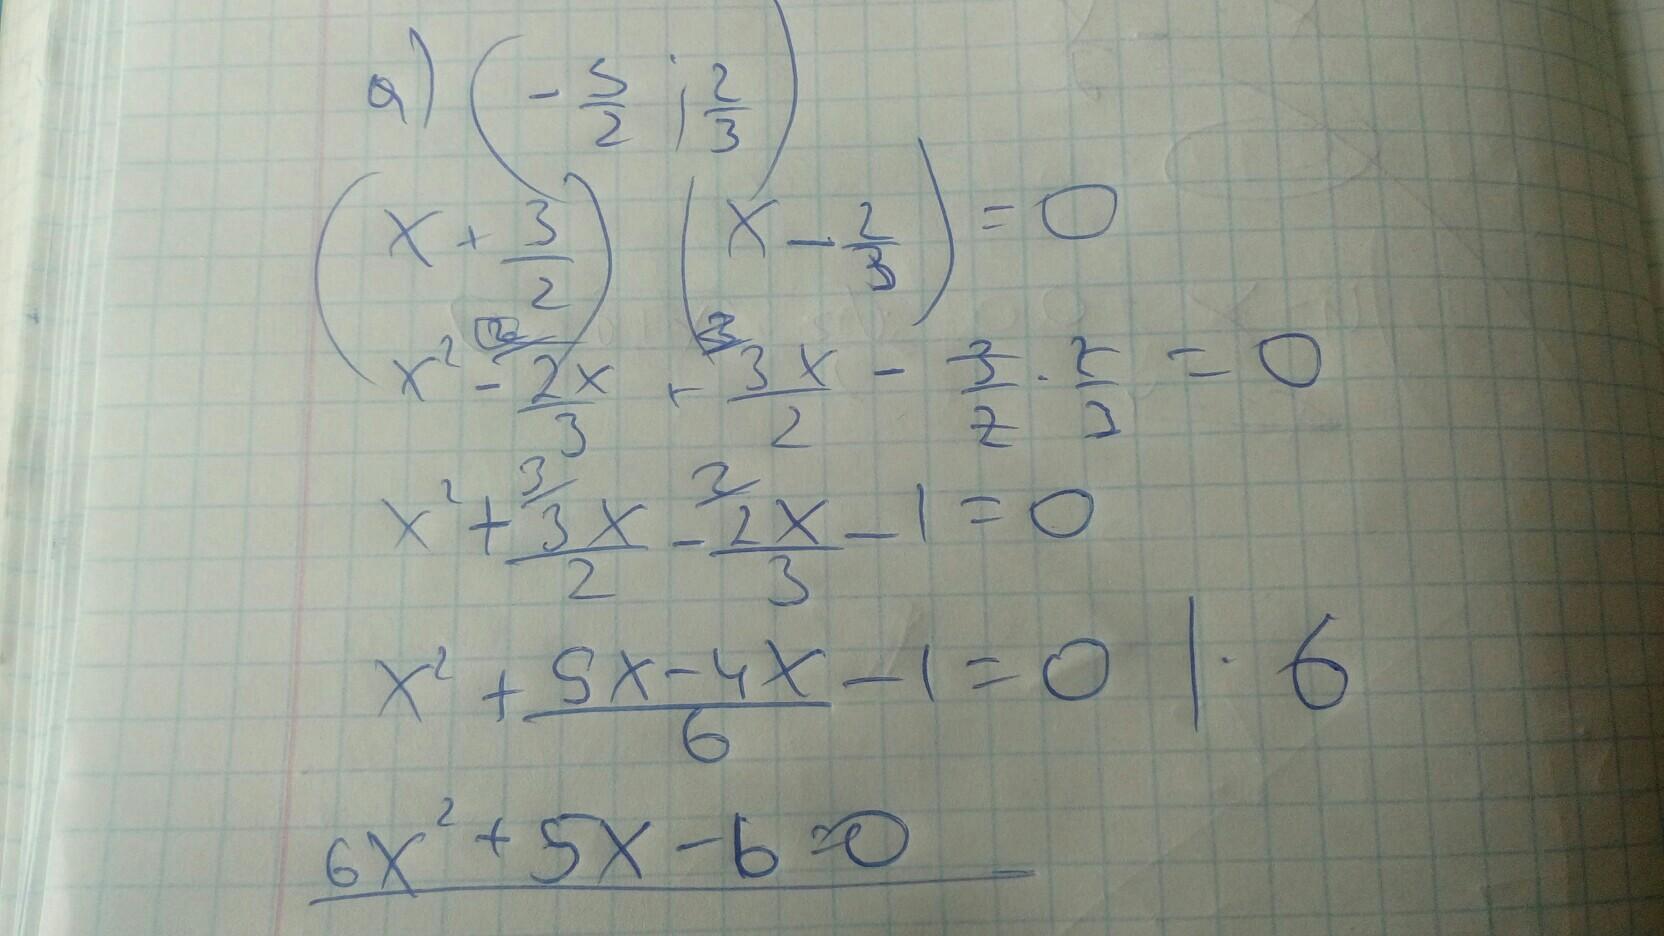 а) (- 5/2 ; 2/3)
(x + 3/2) (x - 2/3) = 0
x² - 2x/3 + 3x/2 - 3/2 · 2/3 = 0
x² + 3/ 3x/2 - 2/ 2x/3 - 1 = 0
x² + 5x-4x/6 - 1 = 0 | · 6
6x² + 5x - 6 = 0